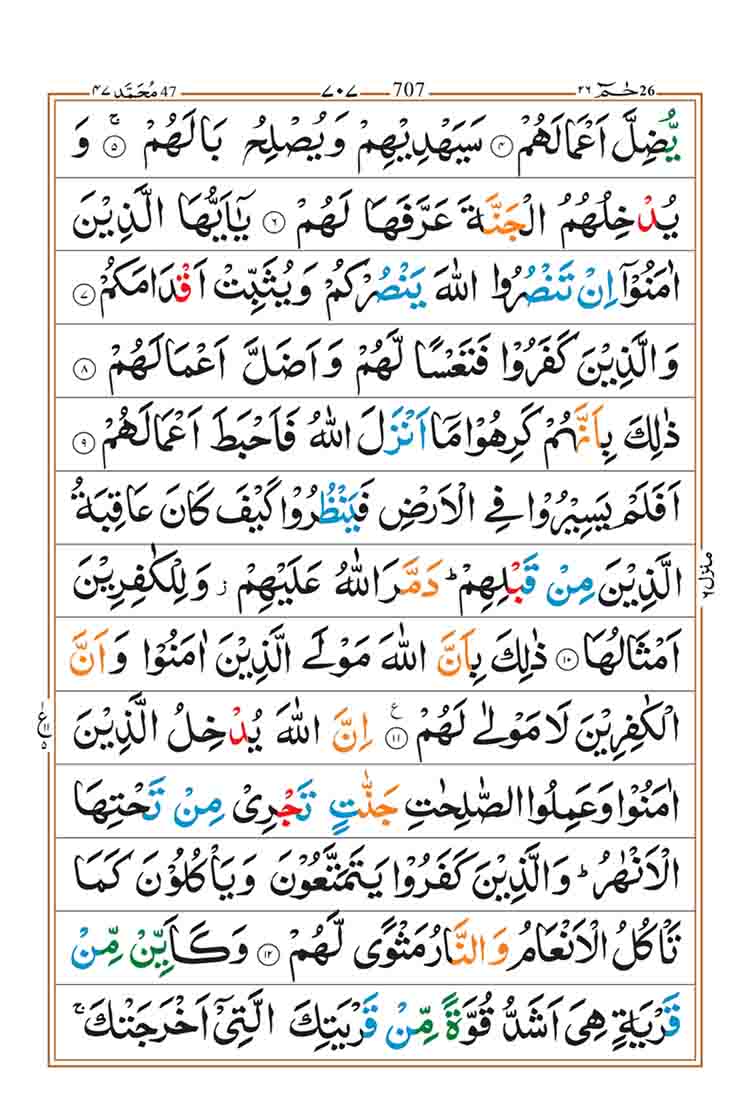 حٰمٓ 26 ٢٦ 707 ٧٠٧ مُحَمَّد 47 ٤٧
يُّضِلَّ اَعْمَالَهُمْ ﴿٤﴾ سَيَهْدِيْهِمْ وَيُصْلِحُ بَالَهُمْ ۚ﴿٥﴾ وَ
يُدْخِلُهُمُ الْجَنَّةَ عَرَّفَهَا لَهُمْ ﴿٦﴾ يٰۤاَيُّهَا الَّذِيْنَ
اٰمَنُوْۤا اِنْ تَنْصُرُوا اللّٰهَ يَنْصُرْكُمْ وَيُثَبِّتْ اَقْدَامَكُمْ ﴿٧﴾
وَالَّذِيْنَ كَفَرُوْا فَتَعْسًا لَّهُمْ وَاَضَلَّ اَعْمَالَهُمْ ﴿٨﴾
ذٰلِكَ بِاَنَّهُمْ كَرِهُوْا مَاۤ اَنْزَلَ اللّٰهُ فَاَحْبَطَ اَعْمَالَهُمْ ﴿٩﴾
اَفَلَمْ يَسِيْرُوْا فِي الْاَرْضِ فَيَنْظُرُوْا كَيْفَ كَانَ عَاقِبَةُ
الَّذِيْنَ مِنْ قَبْلِهِمْ ؕ دَمَّرَ اللّٰهُ عَلَيْهِمْ ز وَلِلْكٰفِرِيْنَ
منزل ٦
اَمْثَالُهَا ﴿١٠﴾ ذٰلِكَ بِاَنَّ اللّٰهَ مَوْلَى الَّذِيْنَ اٰمَنُوْا وَاَنَّ
الْكٰفِرِيْنَ لَا مَوْلٰى لَهُمْ ﴿١١﴾ ع اِنَّ اللّٰهَ يُدْخِلُ الَّذِيْنَ
ع ١ ١١ ٥
اٰمَنُوْا وَعَمِلُوا الصّٰلِحٰتِ جَنّٰتٍ تَجْرِيْ مِنْ تَحْتِهَا
الْاَنْهٰرُ ؕ وَالَّذِيْنَ كَفَرُوْا يَتَمَتَّعُوْنَ وَيَاْكُلُوْنَ كَمَا
تَاْكُلُ الْاَنْعَامُ وَالنَّارُ مَثْوًى لَّهُمْ ﴿١٢﴾ وَكَاَيِّنْ مِّنْ
قَرْيَةٍ هِيَ اَشَدُّ قُوَّةً مِّنْ قَرْيَتِكَ الَّتِيْۤ اَخْرَجَتْكَ ۚ